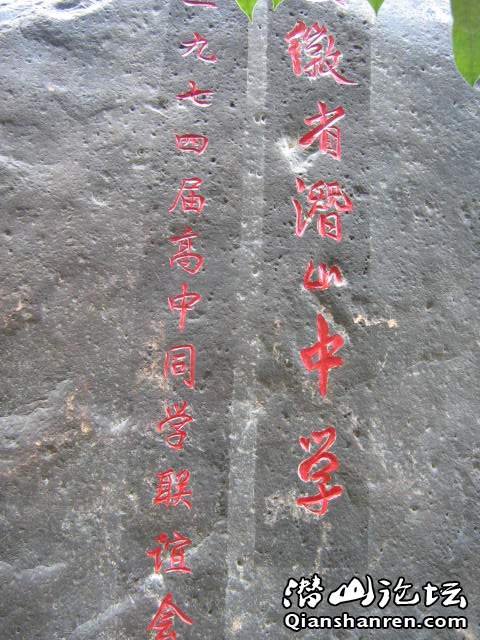 徽省潜山中学
一九七四届高中同学联谊会
潜山论坛
Qianshanren.com